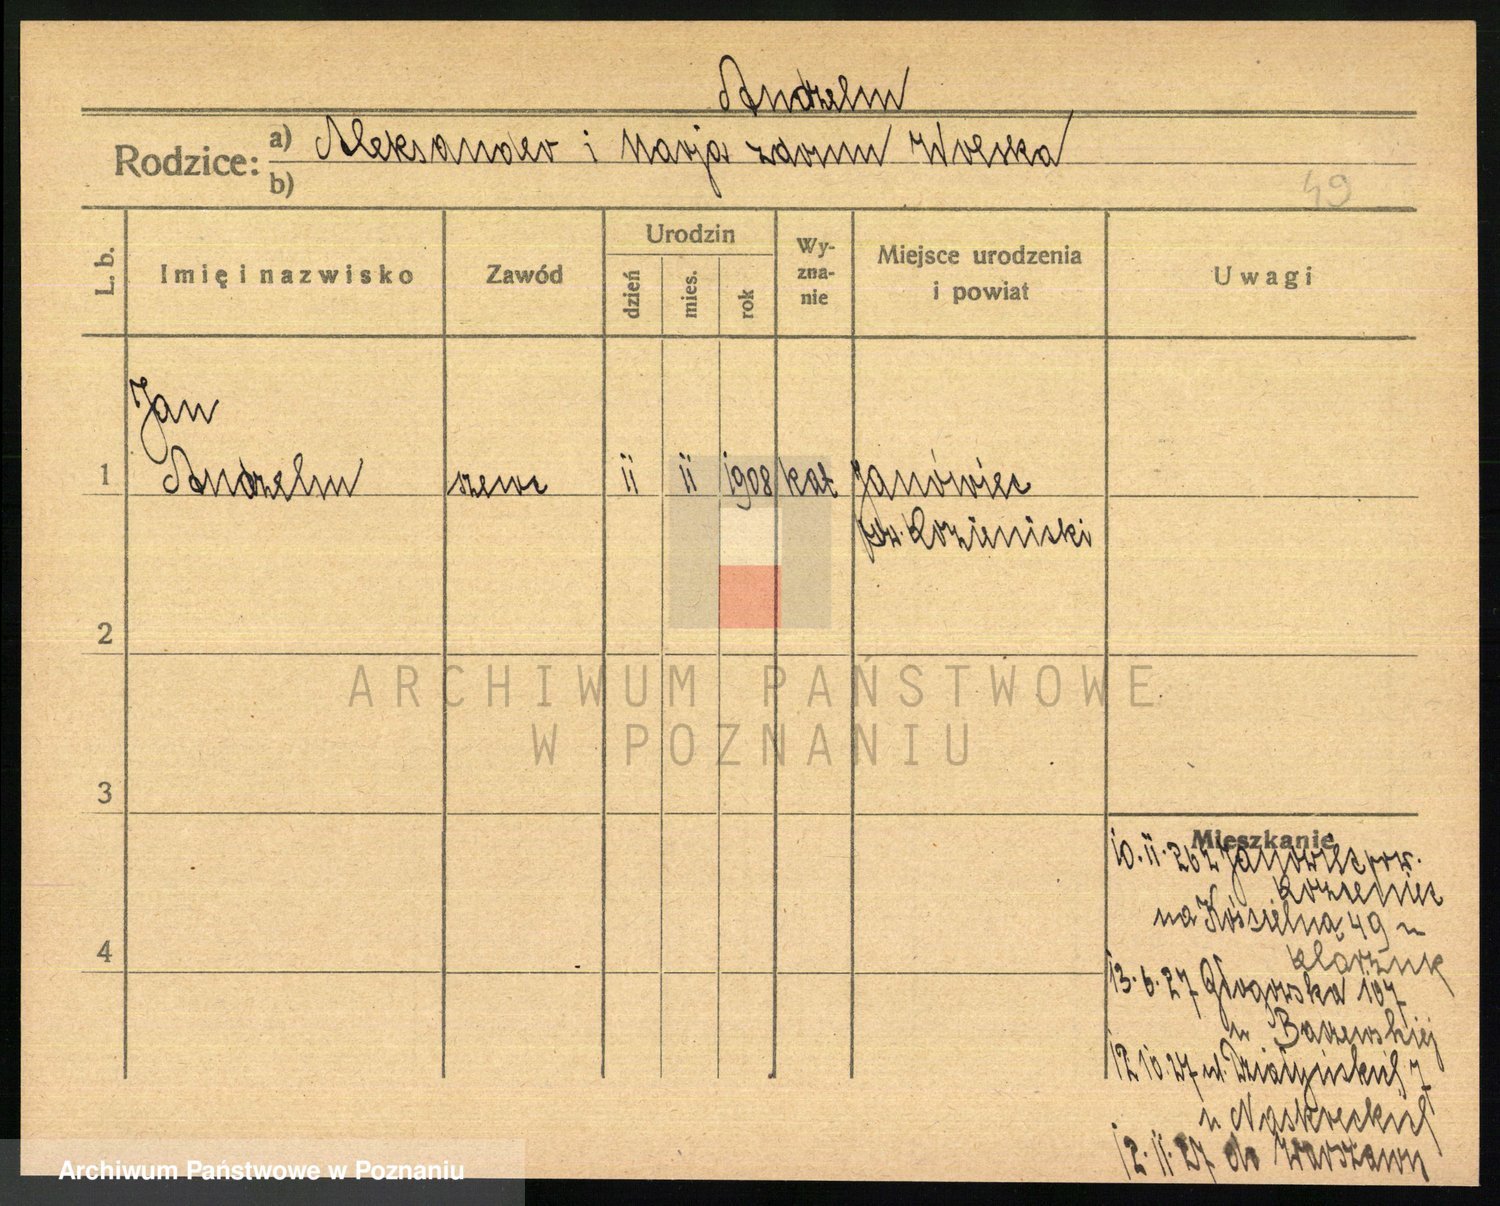 Andzelm
Rodzice: a) Aleksander i Marja z domu Wolska
b)
49
L. b. Imię i nazwisko Zawód Urodzin dzień mies. rok Wy-zna-nie Miejsce urodzenia i powiat Uwagi
Jan
1 Andzelm szewc 11 11 1908 kat Janówiec
pow. Kozieniski
2
ARCHIWUM PAŃSTWOWE
W POZNANIU
3
Mieszkanie
10.11.26 z Janowiec pow.
Kozieniec
na Kościelną 49 u
13.6.27 Głogowska 107
u
12 10.27 ul. Działyńskich 7
4
u Naskreckich
12.11.27 do Warszawy
Archiwum Państwowe w Poznaniu